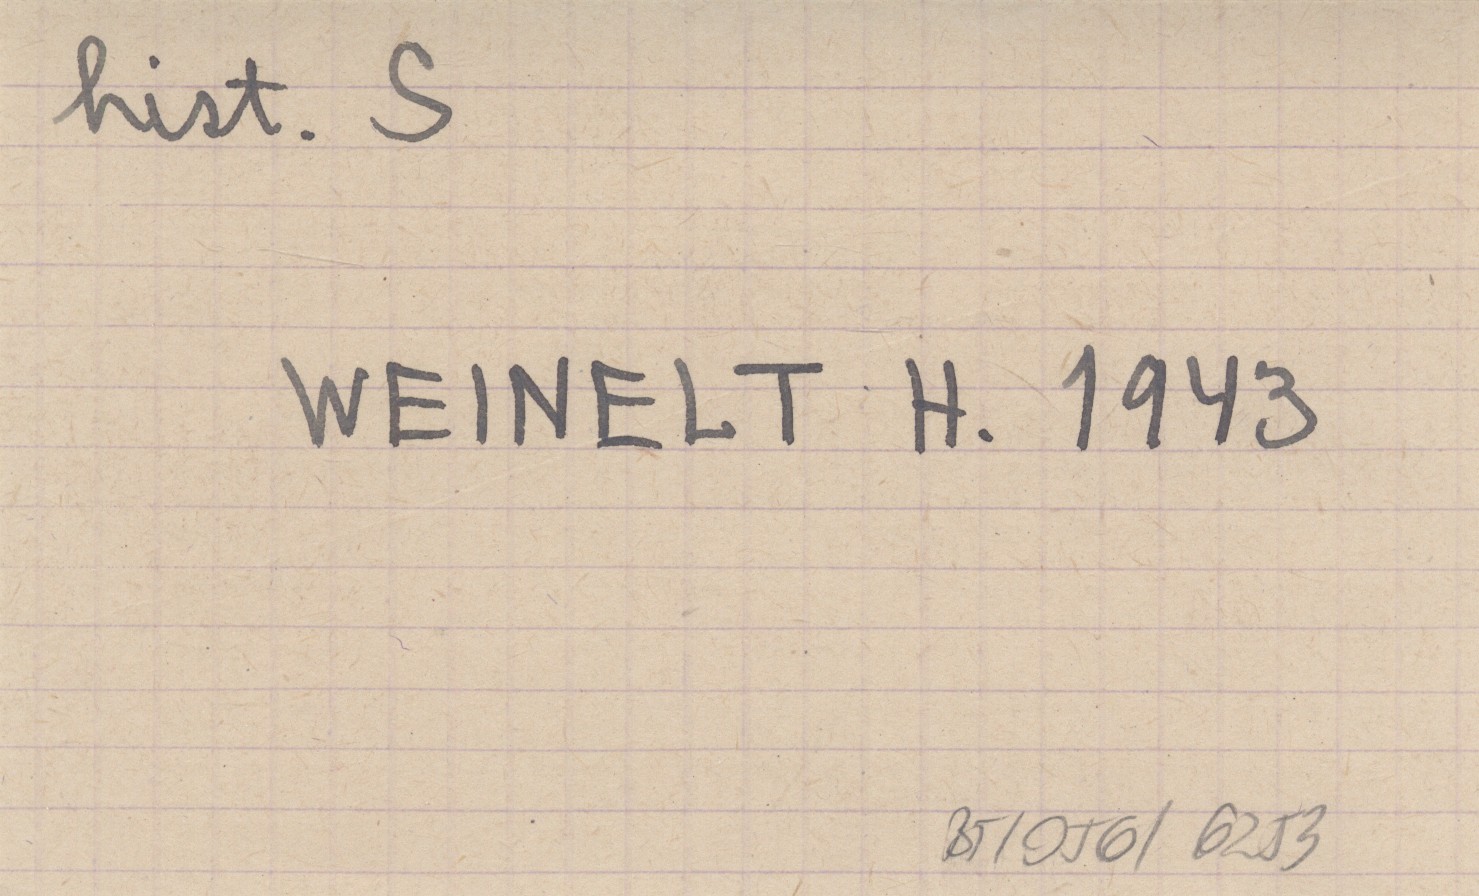 hist. S
WEINELT H. 1943
6253